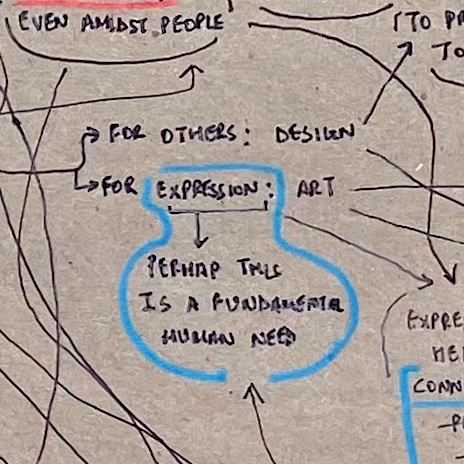 EVEN AMIDST PEOPLE
(TO PR
TO
FOR OTHERS: DESIGN
FOR EXPRESSION: ART
PERHAP THIS
IS A FUNDAMENTAL
HUMAN NEED
EXPRE
HE
CONN